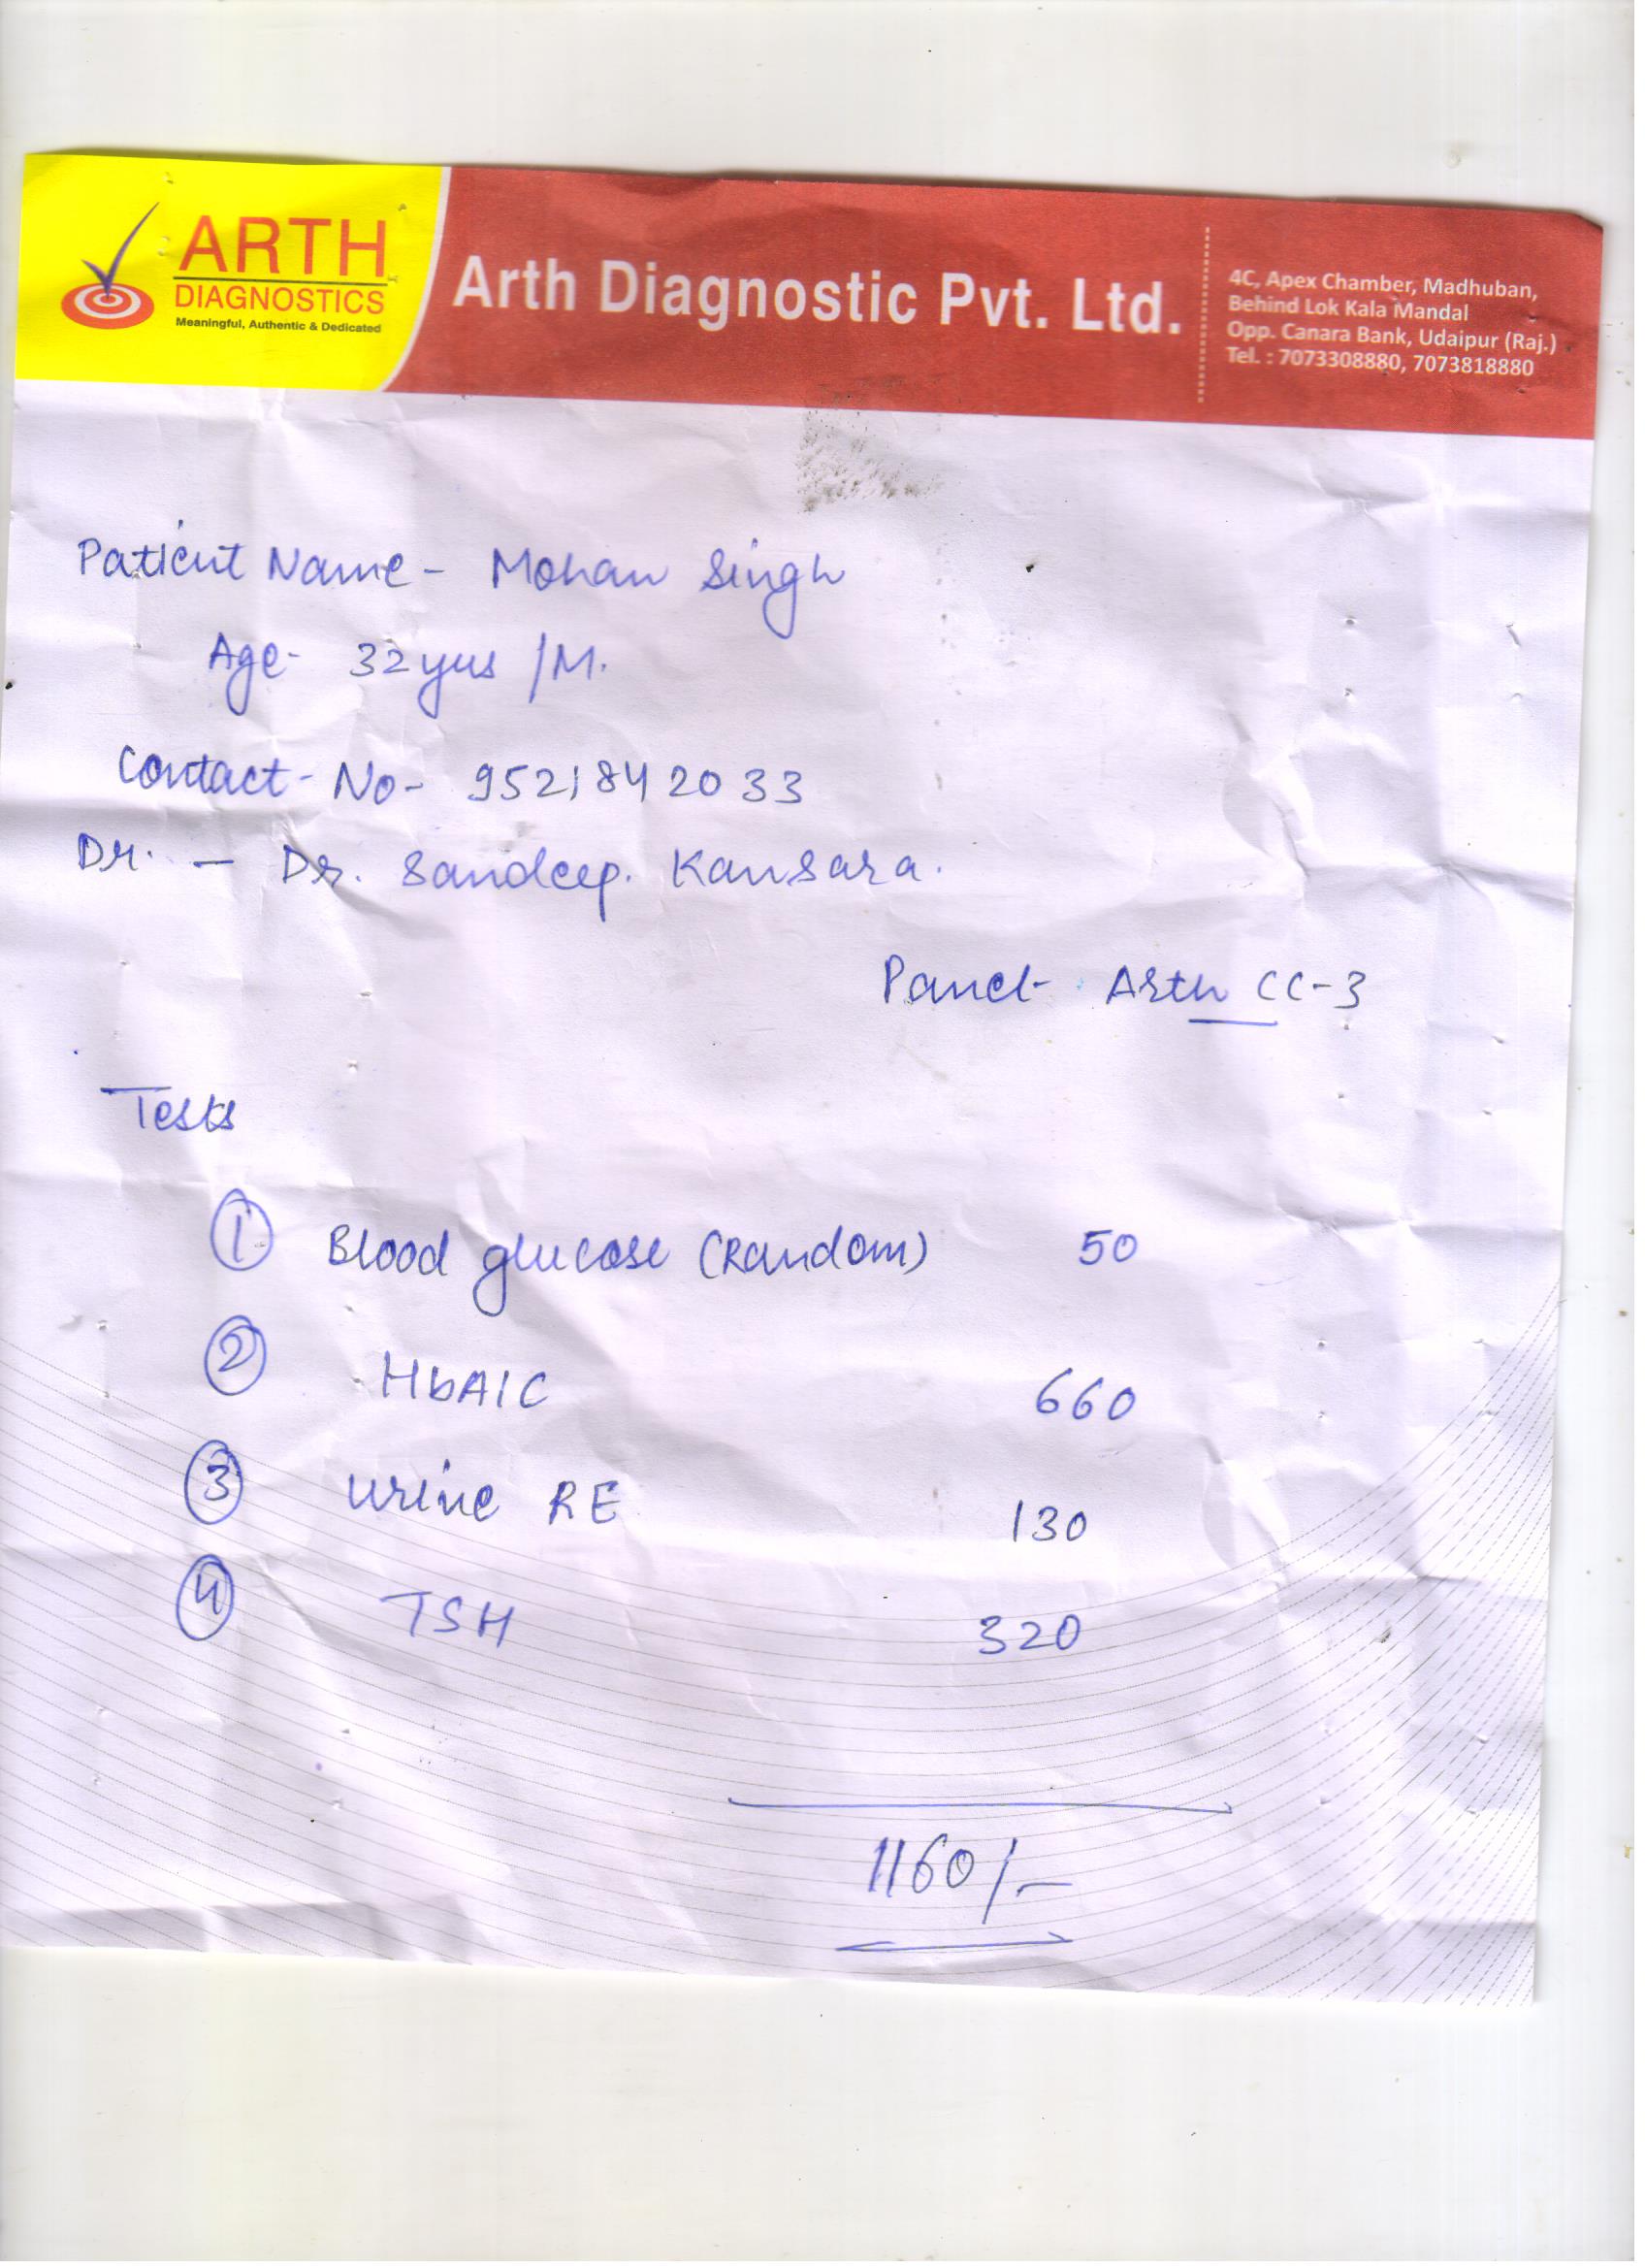 ARTH
DIAGNOSTICS
Meaningful, Authentic & Dedicated
Arth Diagnostic Pvt. Ltd.
4C, Apex Chamber, Madhuban,
Behind Lok Kala Mandal
Opp. Canara Bank, Udaipur (Raj.)
Tel. : 7073308880, 7073818880
Patient Name - Mohan Singh
Age - 32 yrs /M.
Contact - No - 9521842033
Dr. - Dr. Sandeep. Kansara.
Panel - Arth CC-3
Tests
1 Blood glucose (Random) 50
2 HbA1C 660
3 Urine RE 130
4 TSH 320
1160/-